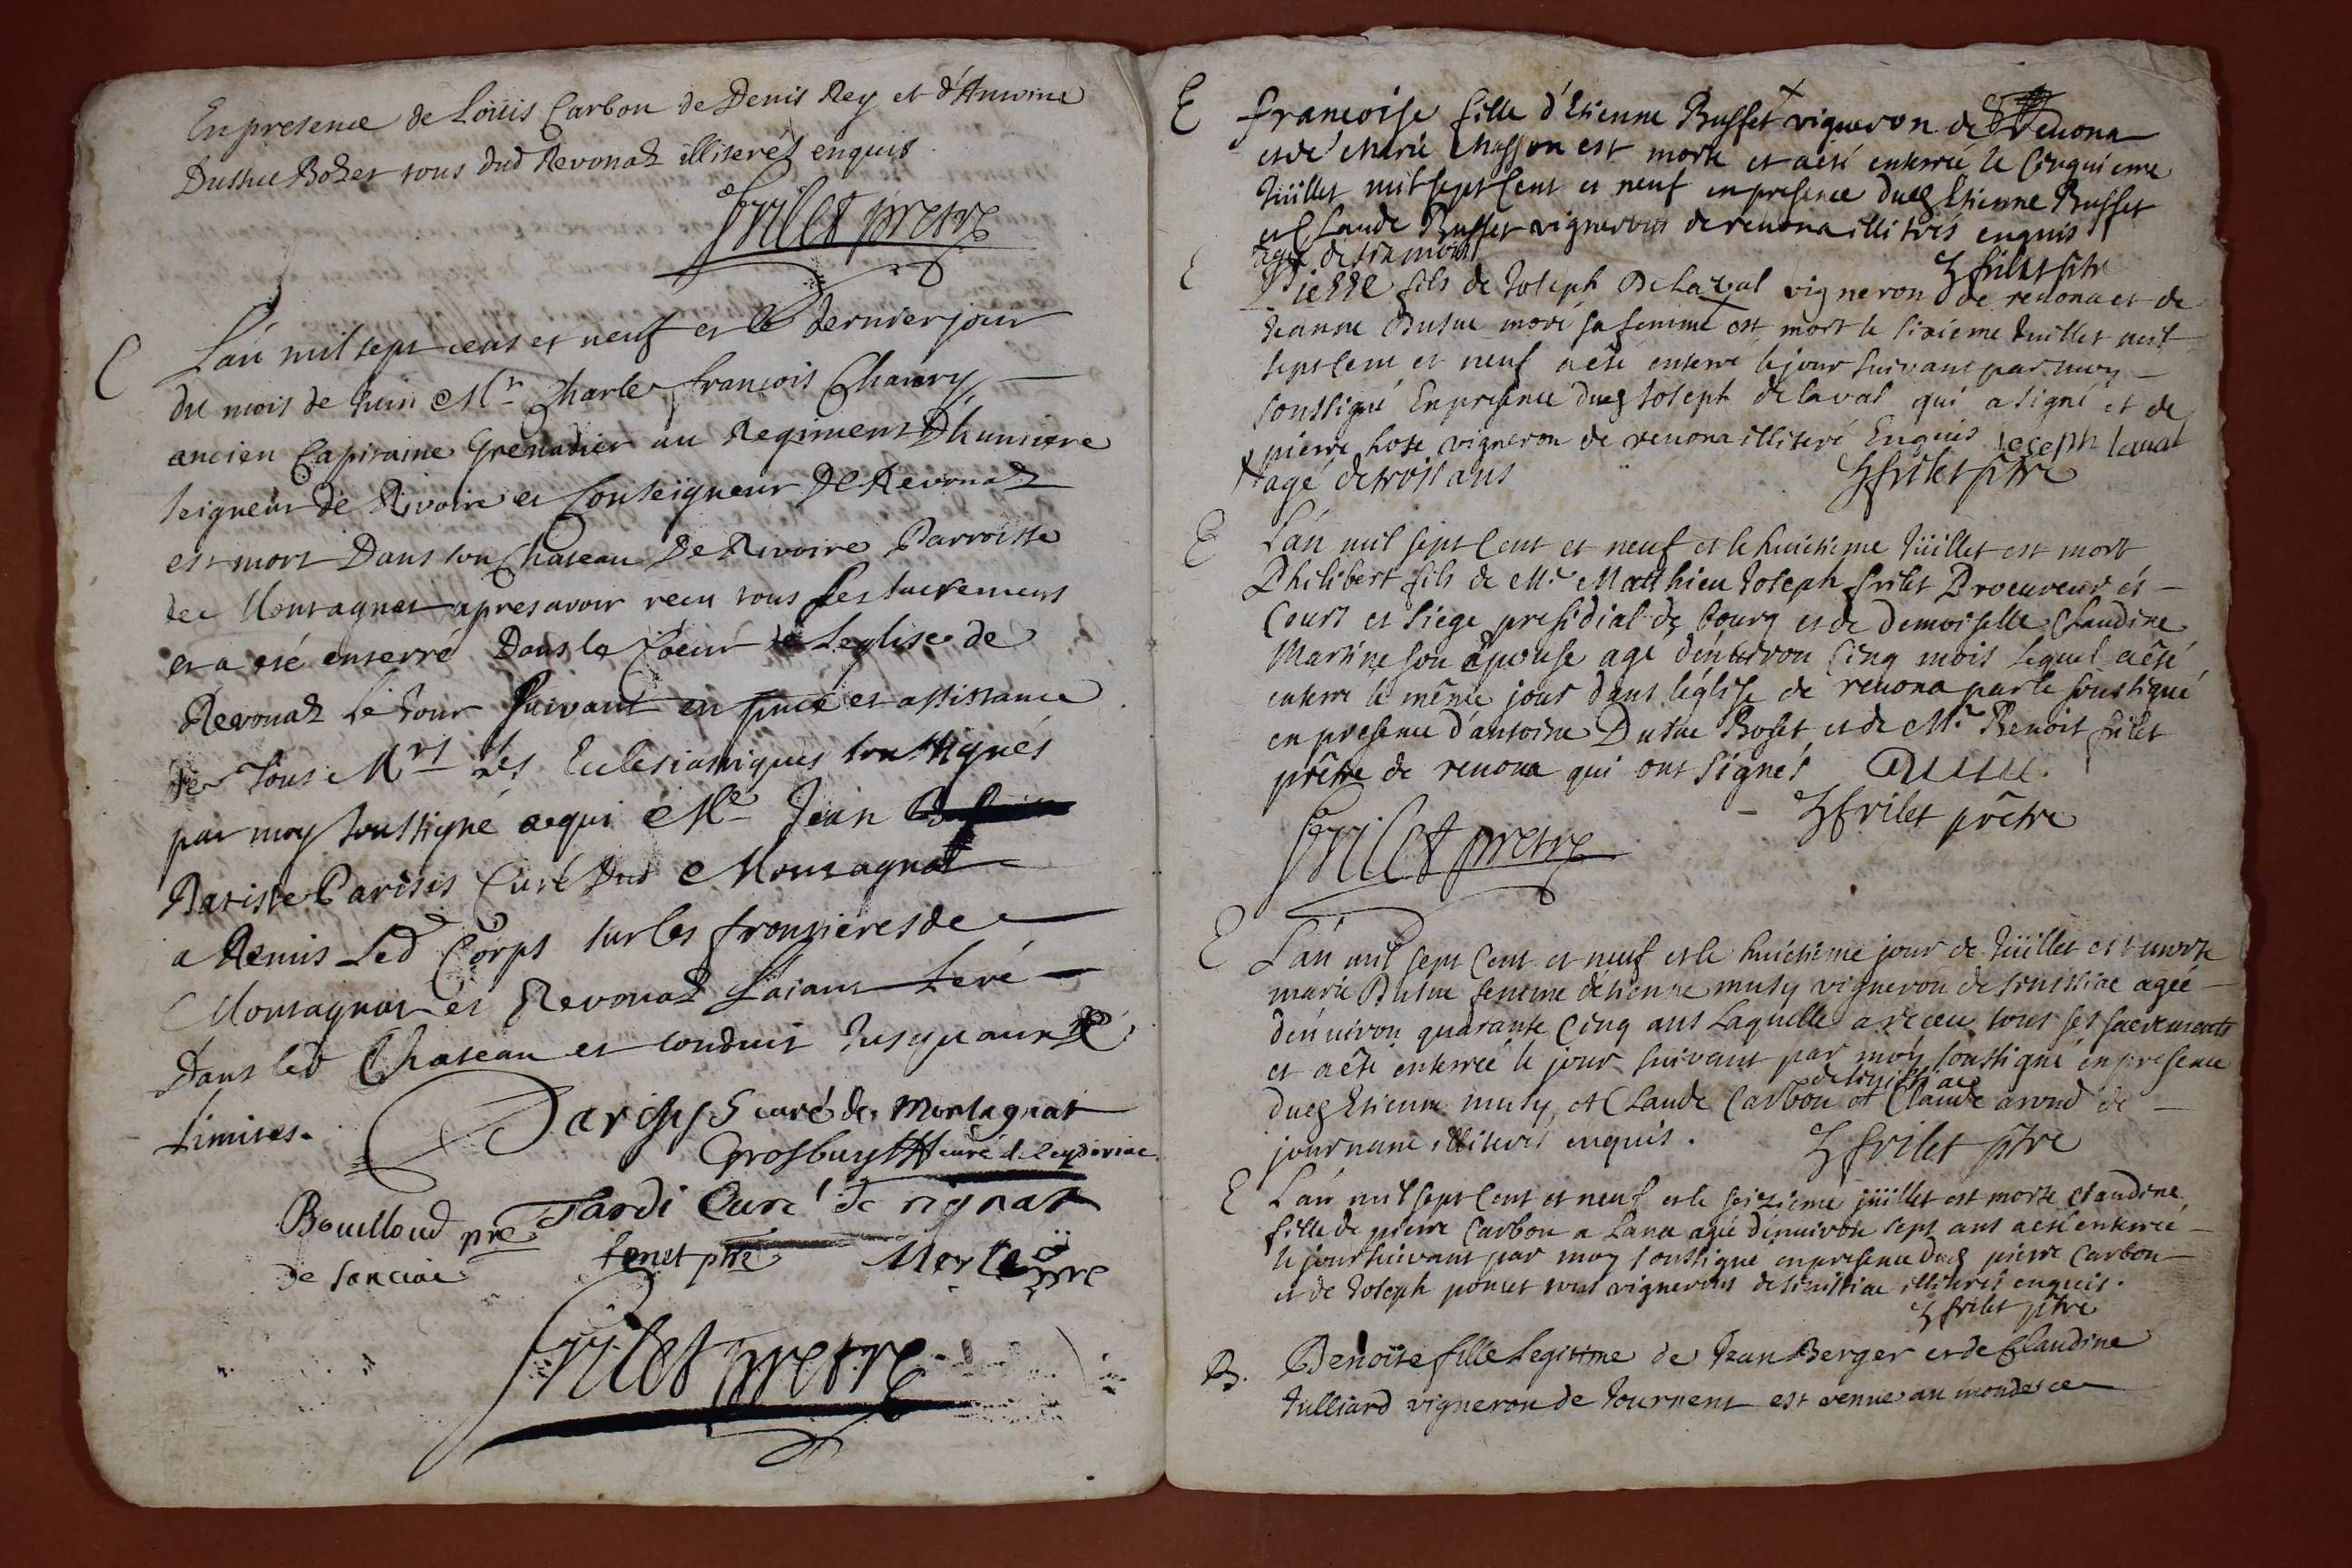 En presence de Loüis Carbon de Denis Rey et d'Antoine
Dustue Bozet tous dud Revonaz illiterés enquis
frilet pretre
E L'an mil sept cens et neuf et le dernier jour
du mois de Juin Mr Charle françois Chanry
ancien Capitaine Grenadier au Regiment D'humiere
seigneur de Rivoire et Conseigneur De Revonaz
est mort Dans son Chateau De Rivoire Parroisse
de Montagnat apres avoir reçu tous ses sacremens
et a eté enterré Dans le Coeur de Leglise de
Revonaz le Jour suivant en pnce et assistance
de tous Mrs Les Eclesiastiques soussignés
par moy soussigné a qui Mre Jean
Batiste Parisis Curé dud Montagnat
a Remis Led Corps sur les frontieres de
Montagnat et Revonaz L'aiant Levé
Dans led Chateau et conduit Jusqu'aux d
Limites.
Parisys curé de Montagnat
Grosbuys curé de Ceyzeriac
Bouilloud pre Tardi Curé de rignat
de sanciat tenet ptre Merle pre
frilet pretre
E françoise fille d'Etienne Buffet vigneron de revona
et de Marie Masson est morte et a eté enterrée le Cinquieme
Juillet mil sept Cent et neuf en presence dud Etienne Buffet
et Claude Buffet vignerons de revona illitrés enquis
agée de six mois B frilet ptre
E Pierre fils de Joseph Delaval vigneron de revona et de
Jeanne Dutue mori sa femme est mort le sixieme Juillet mil
sept Cent et neuf a eté enterré le jour suivant par moy
soussigné En presence dud Joseph delaval qui a signé et de
pierre hose vigneron de revona illiteré Enquis ioceph laual
+ agé de trois ans B frilet ptre
E L'an mil sept Cent et neuf et le huictieme Jüillet est mort
Philibert fils de Mr Matthieu Joseph frilet Procureur és
Cours et siege presidial de bourg et de Demoiselle Claudine
Martine son épouse agé d'environ Cinq mois lequel a été
enterré le même jour dans l'église de revona par le soussigné
en presence d'antoine Dutue Boset et de Mr Benoit frilet
prêtre de revona qui ont signés Dutue
B frilet prêtre
frilet pretre
E L'an mil sept Cent et neuf et le huictieme jour de Jüillet est morte
marie Dutue femme d'étienne musy vigneron de senissiac agée
d'environ quarante Cinq ans Laquelle a receu tous ses sacrements
et a été enterrée le jour suivant par moy soussigné en presence
de senissiac
dud Etienne musy et Claude Carbon et Claude arond de
journans illiterés enquis. B frilet ptre
E L'an mil sept Cent et neuf et le seizieme jüillet est morte Claudine
fille de pierre Carbon a Lana agée d'environ sept ans a eté enterrée
le jour suivant par moy soussigné en presence dud pierre Carbon
et de Joseph poncet tous vignerons de senissiac illiterés enquis.
B frilet ptre
B. Benoite fille Legitime de Jean Berger et de Claudine
Julliard vigneron de Journens est venue au monde ce